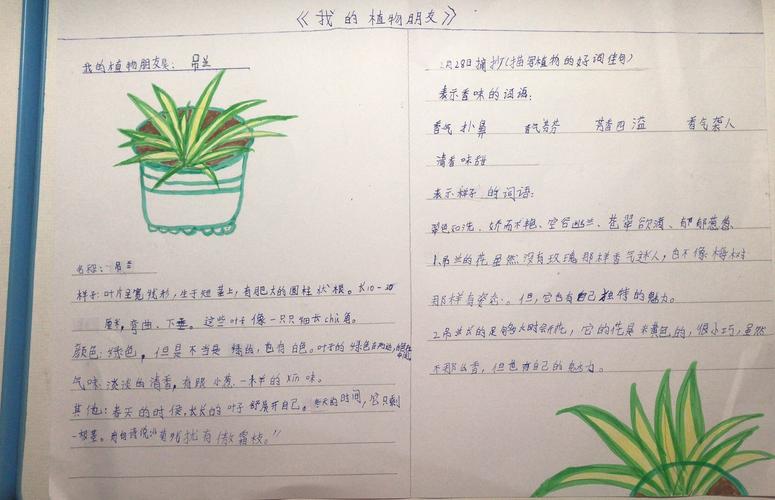 《我的植物朋友》
我的植物朋友：吊兰
名称：吊兰
样子：叶片呈宽线形，生于短茎上，有肥大的圆柱状根。长10-20
厘米，弯曲、下垂。这些叶子像一只只细长chì角。
颜色：绿色，但是不当是绿的，也有白色。叶子的绿色在两边，
气味：淡淡的清香，有股小葱一样的xīn味。
其他：春天的时侯，长长的叶子舒展开自己。冬天的时间，它只剩
一根茎。有句诗说 犹有傲霜枝。”
2月28日摘抄（描写植物的好词佳句）
表示香味的词语：
香气扑鼻 香气芬芳 芳香四溢 香气袭人
清香味甜
表示样子的词语：
翠色如洗、娇而不艳、空谷幽兰、苍翠欲滴、郁郁葱葱
1.吊兰的花虽然没有玫瑰那样香气迷人，也不像梅树
那样有姿态。但，它也有自己独特的魅力。
2.吊兰长的足够大时会开花，它的花是米黄色的，很小巧，虽然
不那么香，但也有自己的魅力。